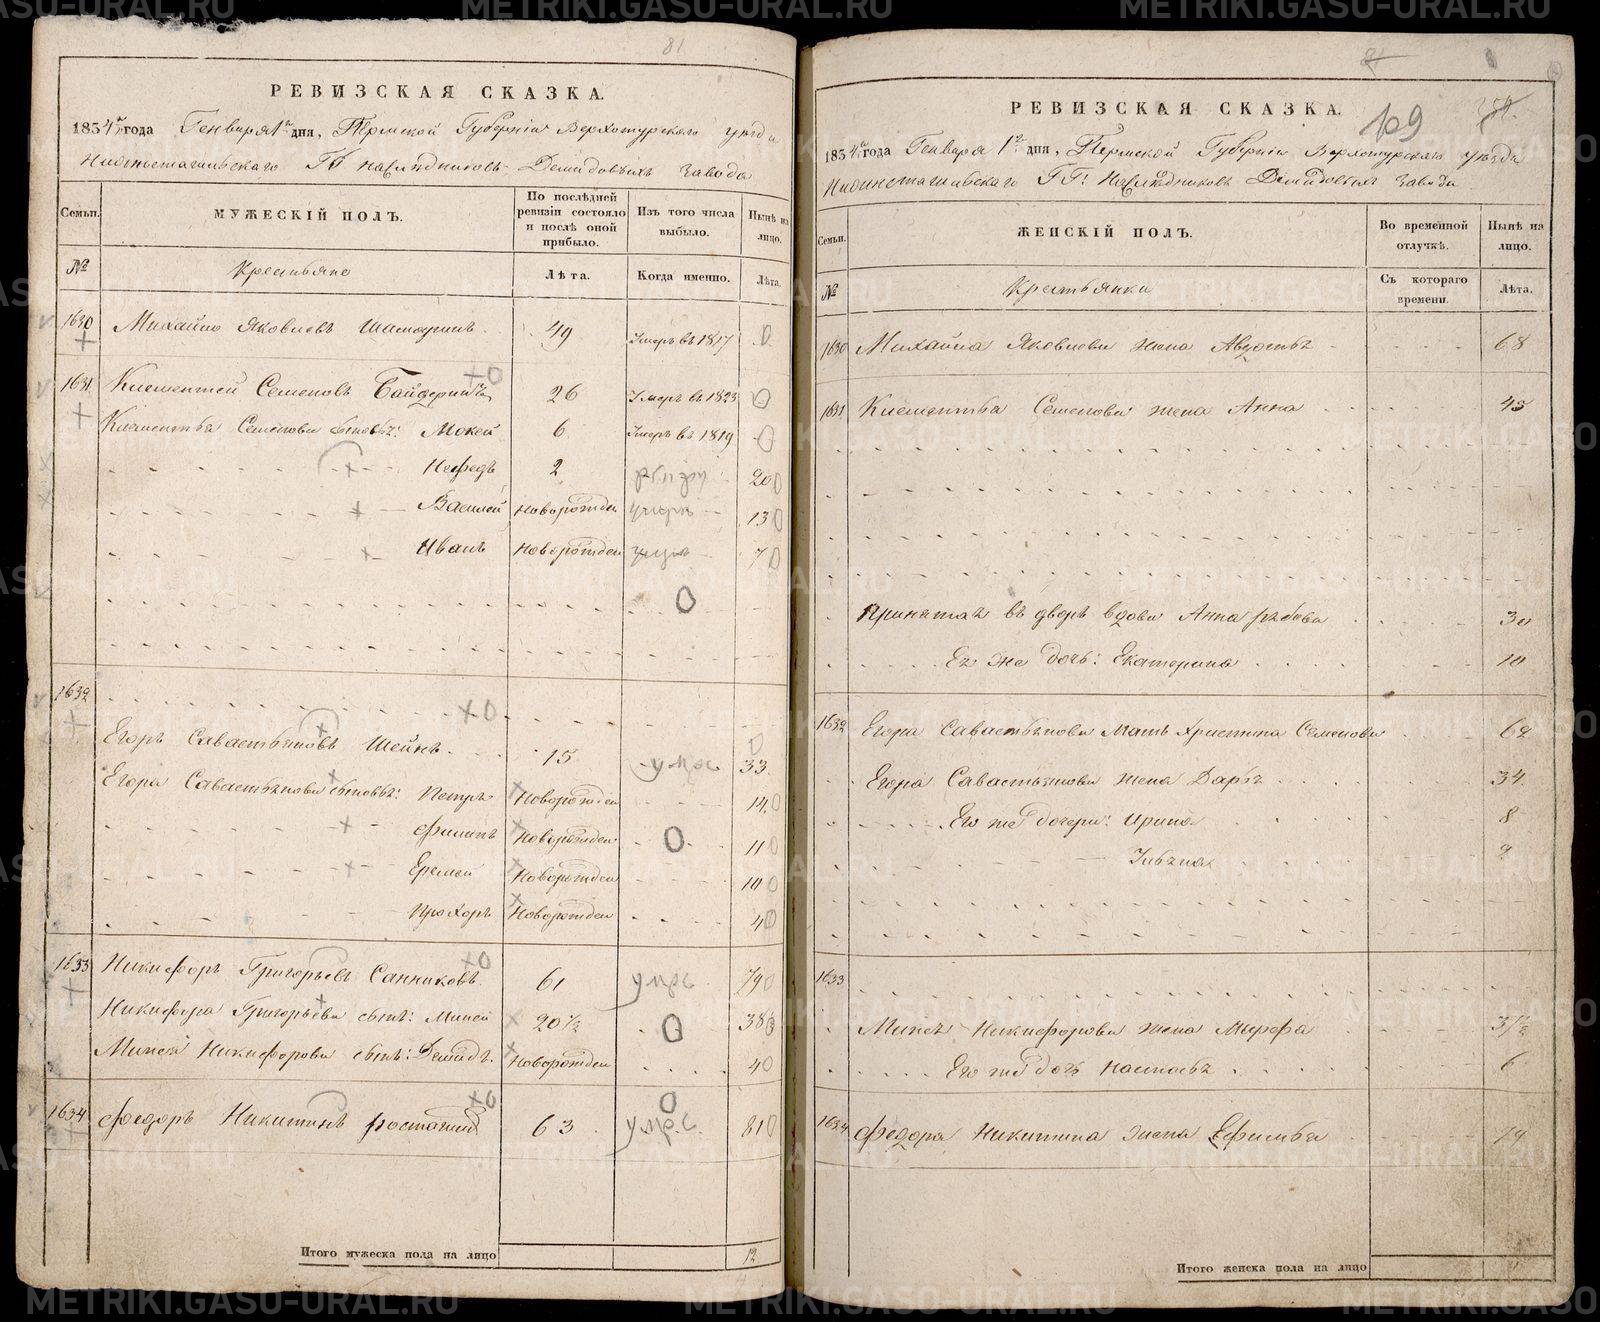 81
РЕВИЗСКАЯ СКАЗКА.
1834 года Генваря 1 дня, Пермской Губернiи Верхотурскаго уезда
Нижнетагильскаго ГГ Наследниковъ Демидовыхъ завода
Семьи. МУЖЕСКIЙ ПОЛЪ. По послѣдней ревизiи состояло и послѣ оной прибыло. Изъ того числа выбыло. Нынѣ на лицо.
№ Крестьяне Лѣта. Когда именно. Лѣта.
1630 Михайло Яковлевъ 49 Умеръ въ 1817 0
1631 Клементей Семеновъ 26 Умеръ въ 1823 0
Клементья Семенова сыновья: Мокей 6 Умеръ въ 1819 0
Нефедъ 2 20
Василей новорожден 13
Иванъ новорожден 7
0
1632
Егоръ Савастьяновъ Шейнъ 15 умре 33
Егора Савастьянова сыновья: Петръ Новорожден 14
Филипъ Новорожден 0 11
Еремей Новорожден 10
Прохоръ Новорожден 4
1633 Никифоръ Григорьевъ Санниковъ 61 умре 79
Никифора Григорьева сынъ: Миней 20½ 0 38½
Минея Никифорова сынъ: Демидъ Новорожден 4
1634 Федоръ Никитинъ 63 умре 81
Итого мужеска пола на лицо 12
109
РЕВИЗСКАЯ СКАЗКА.
1834 года Генваря 1 дня, Пермской Губернiи Верхотурскаго уезда
Нижнетагильскаго ГГ: Наследниковъ Демидовыхъ завода
Семьи. ЖЕНСКIЙ ПОЛЪ. Во временной отлучкѣ. Нынѣ на лицо.
№ Крестьянки Съ котораго времени. Лѣта.
1630 Михайла Яковлева жена Авдотья 68
1631 Клементья Семенова жена Анна 45
Принятая въ дворъ вдова Анна 30
Ея же дочь: Екатерина 10
1632 Егора Савастьянова мать Христина Семенова 62
Егора Савастьянова жена Дарья 34
Его же дочери: Ирина 8
Ульяна 2
1633
Минея Никифорова жена Марфа 37½
Его же дочь Настасья 6
1634 Федора Никитина жена Ефимья 74
Итого женска пола на лицо